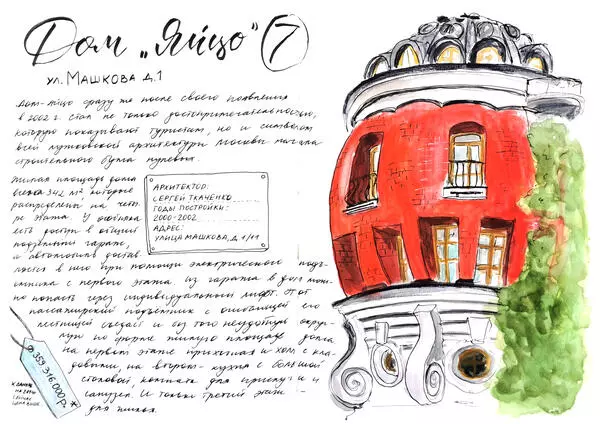 Дом „Яйцо“ 7
ул. Машкова д.1
Дом-яйцо сразу же после своего появления
в 2002 г. стал не только достопримечательностью,
которую показывают туристам, но и символом
всей лужковской архитектуры Москвы начала
строительного бума нулевых.
Жилая площадь дома
всего 342 м² которые
распределены на четы-
ре этажа. У особняка
есть доступ в общий
подземный гараж,
а автомобиль достав-
ляется в него при помощи электрического подъ-
емника с первого этажа из гаража в дом мож-
но попасть через индивидуальный лифт. Этот
пассажирский подъемник с опоясывающей его
лестницей съедает и без того неудобную округ-
лую по форме жилую площадь дома
на первом этаже прихожая и холл с кла-
довыми, на втором - кухня с большой
столовой, комната для прислуги и
санузел. И только третий этаж -
для жилья.
Архитектор:
Сергей Ткаченко
Годы постройки:
2000-2002
Адрес:
улица Машкова, д. 1/11
359 346 000 р.